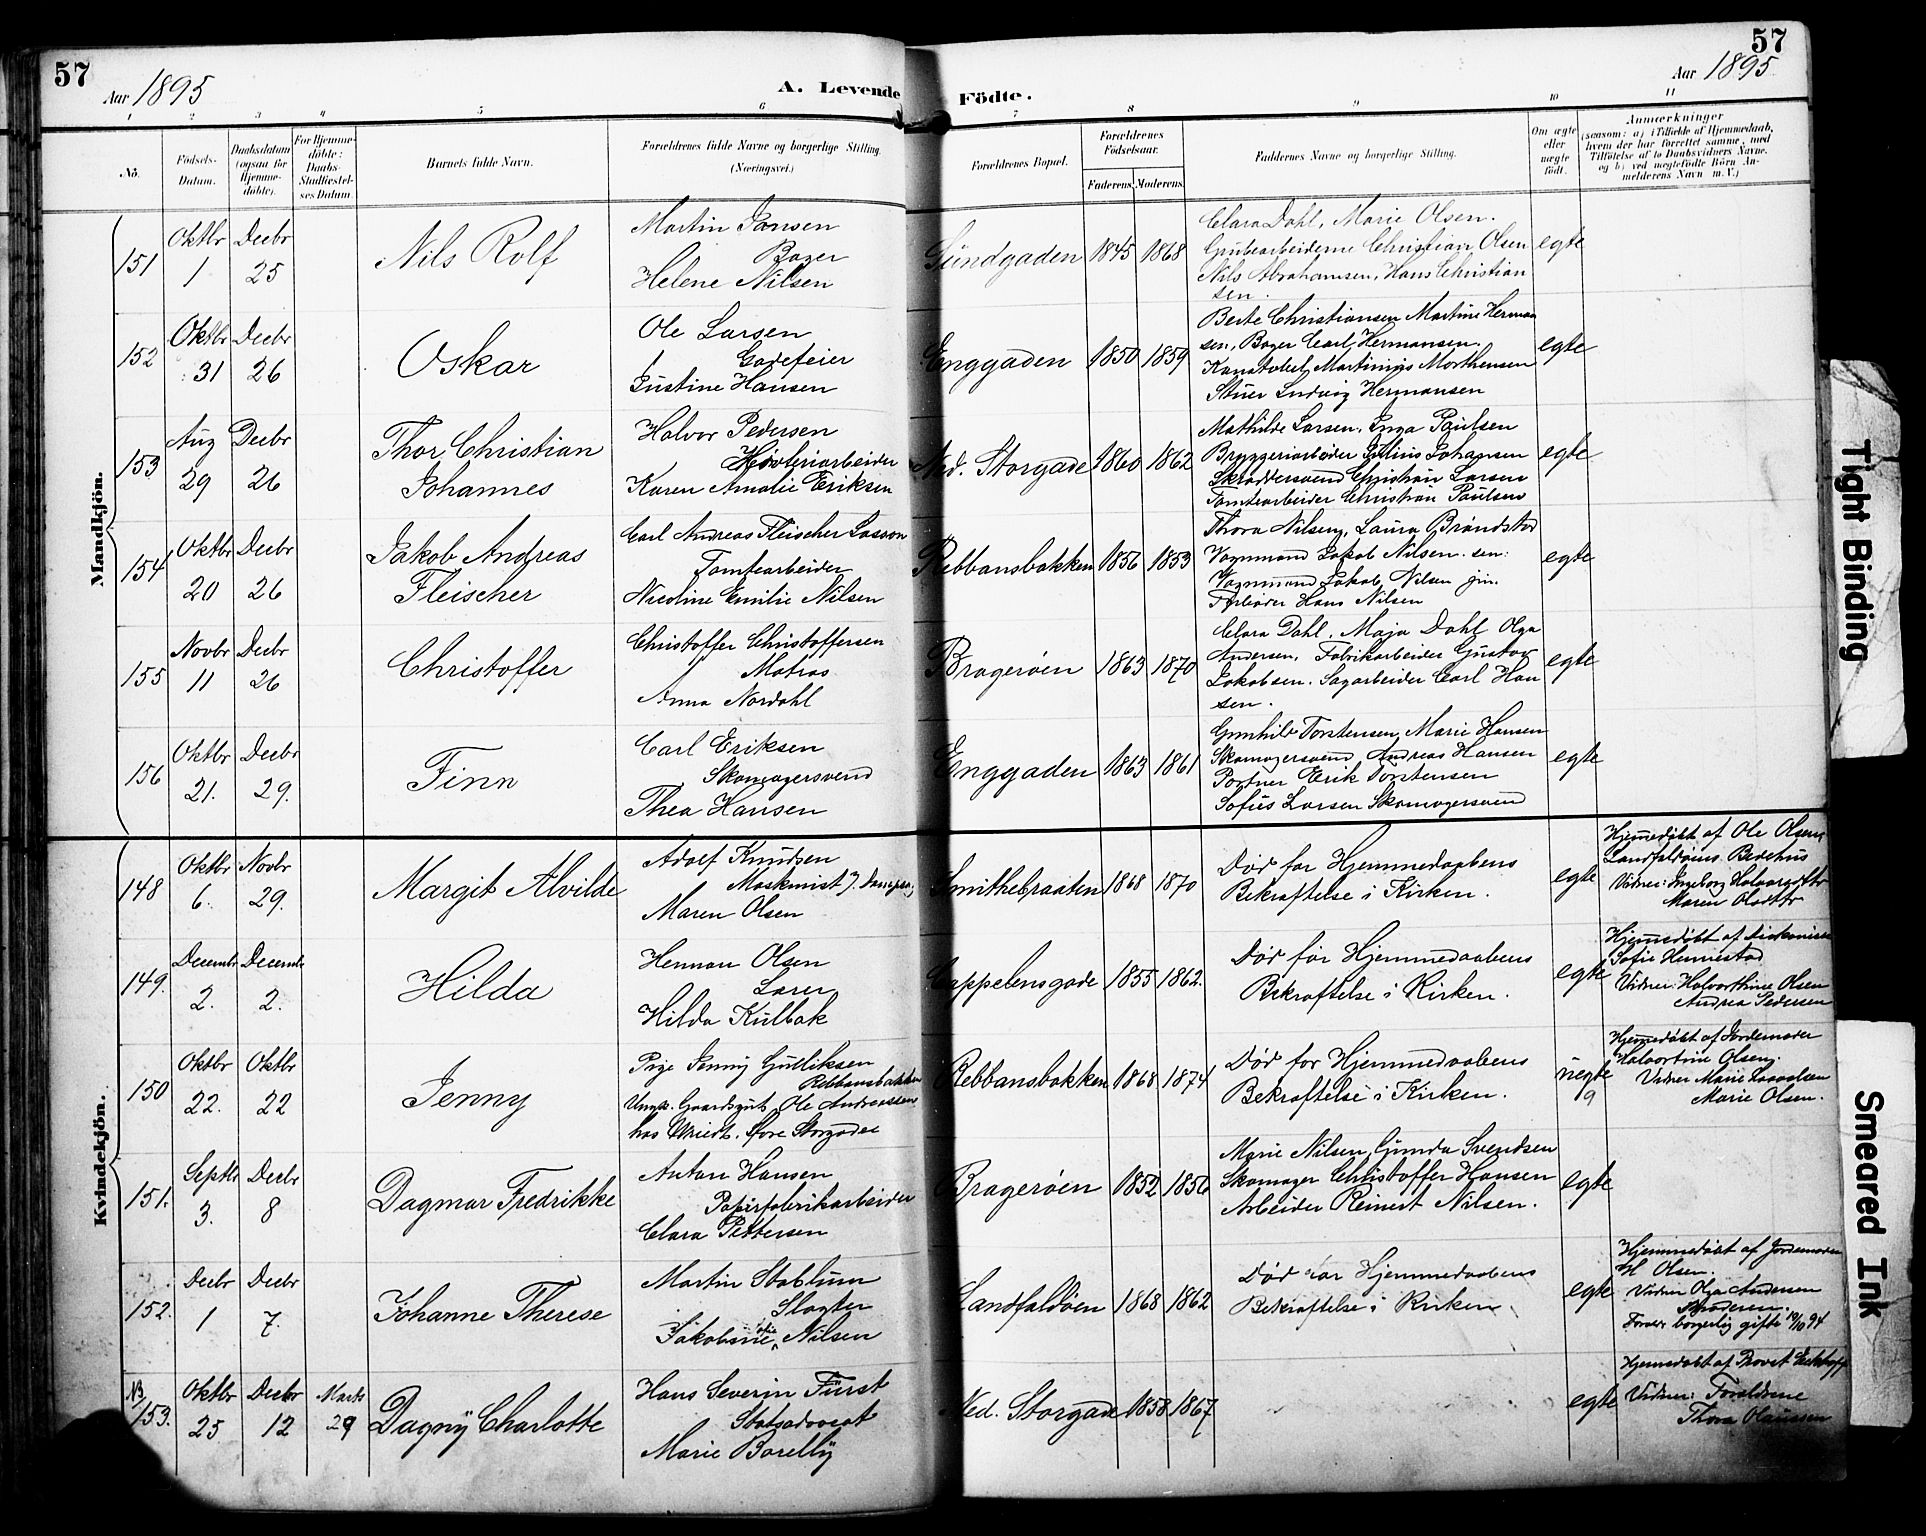 57
Aar 1895
A. Levende
Födte.
57
Aar 1895
1 2 3 4 5 6 7 8 9 10 11
No.
Födsels-
Datum.
Daabsdatum
(ogsaa for
Hjemme-
döbte).
For Hjemme-
döbte:
Daabs-
Stadfæstel-
ses Datum.
Barnets fulde Navn.
Forældrenes fulde Navne og borgerlige Stilling.
(Næringsvei.)
Forældrenes Bopæl.
Forældrenes
Födselsaar.
Faderens. Moderens.
Faddernes Navne og borgerlige Stilling.
Om ægte
eller
uægte
født.
Anmærkninger
(saasom: a) i Tilfælde af Hjemmedaab,
hvem der har forrettet samme, med
Tilföielse af to Daabsvidners Navne.
og b) ved uægtefödte Börn An-
melderens Navn m. V.)
Mandkjön.
151
Oktbr
1
Decbr
25
Nils Rolf
Martin Jansen
Bager
Helene Nilsen
Sundgaden
1845
1868
Clara Dahl, Marie Olsen.
Grubearbeiderne Christian Olsen
Nils Abrahamsen, Hans Christian
sen.
egte
152
Oktbr
31
Decbr
26
Oskar
Ole Larsen
Gadefeier
Justine Hansen
Enggaden
1850
1859
Berte Christiansen Martine Herman
sen, Bager Carl Hermansen.
Martinius Morthensen
Stuer Ludvig Hermansen
egte
153
Aug
29
Decbr
26
Thor Christian
Johannes
Halvor Pedersen
Karen Amalie Eriksen
Ned. Storgade
1860
1862
Mathilde Larsen, Inga Paulsen
Bryggeriarbeider Julius Johansen
Skræddersvend Christian Larsen
Tomtearbeider Christian Paulsen
egte
154
Oktbr
20
Decbr
26
Jakob Andreas
Fleischer
Carl Andreas Fleischer Lasson
Tomtearbeider
Nicoline Emilie Nilsen
Rebbansbakken
1856
1853
Thora Nilsen, Laura Brandstad
Vognmand Jakob Nilsen. sen:
Vognmand Jakob Nilsen jun.
Hans Nilsen
egte
155
Novbr
11
Decbr
26
Christoffer
Christoffer Christoffersen
Matros
Anna Nordahl
Bragerøen
1863
1870
Clara Dahl, Maja Dahl Olga
Andersen, Fabrikarbeider Gustav
Jakobsen. Sagarbeider Carl Han
sen.
egte
156
Oktbr
21.
Decbr
29.
Finn
Carl Eriksen
Skomagersvend
Thea Hansen
Enggaden
1863
1861
Gunhild Torstensen, Marie Hansen
Skomagersvend, Andreas Hansen
Portner Erik Torstensen
Sofus Larsen Skomagersvend
egte
Kvindekjön.
148
Oktbr
6.
Novbr
29.
Margit Alvilde
Adolf Knudsen
Maskinist
Maren Olsen
Smithebraaten
1868
1870
Død før Hjemmedaabens
Bekræftelse i Kirken.
egte
Hjemmedøbt af Ole Olsen
Landfaldøens Bedehus
Vidner: Ingeborg Halvorsdttr
Maren Olsdttr
149.
Decembr
2.
Decembr
2.
Hilda
Herman Olsen
Laser
Hilda Kulbak
Cappelensgade
1855
1862.
Død før Hjemmedaabens
Bekræftelse i Kirken.
egte
Hjemmedøbt af Diakonisse
Sofie Hennestad
Vidner: Halvorthine Olsen
Andrea Pedersen
150
Oktbr
22.
Oktbr
22
Jenny
Pige Jenny Gulliksen
Rebbansbakken
Ungk. Gaardsgut Ole Andreassen
hos store Storgade
Rebbansbakken
1868
1874
Død før Hjemmedaabens
Bekræftelse i Kirken.
uegte
9
Hjemmedøbt af Jordemoder
Halvortine Olsen.
Vidner Marie
Marie Olsen.
151.
Septbr
3.
Decbr
8
Dagmar Fredrikke
Anton Hansen
Papirfabrikarbeider
Clara Pettersen
Bragerøen
1852
1856
Marie Nilsen, Gunda Svendsen
Skomager Christoffer Hansen
Arbeider Reinert Nilsen.
egte
152.
Decbr
1
Decbr
7.
Johanne Therese
Martin Stablum
Slagter
Jakobine Nilsen
Landfaldøen
1868
1862
Død før Hjemmedaabens
Bekræftelse i Kirken
egte
Hjemmedøbt af Jordemoder
H Olsen.
Vidner Olga Andersen
Moderen.
Foræld. borgerlig gifte 10/10 94
NB
153.
Oktbr
25
Decbr
12
Marts
29
Dagny Charlotte
Hans Severin Fürst
Statsadvocat
Marie Borelly
Ned. Storgade
1858
1867
egte
Hjemmedøbt af Provst
Vidner: Forældrene
Thora Olaussen
Tight Binding
Smeared Ink